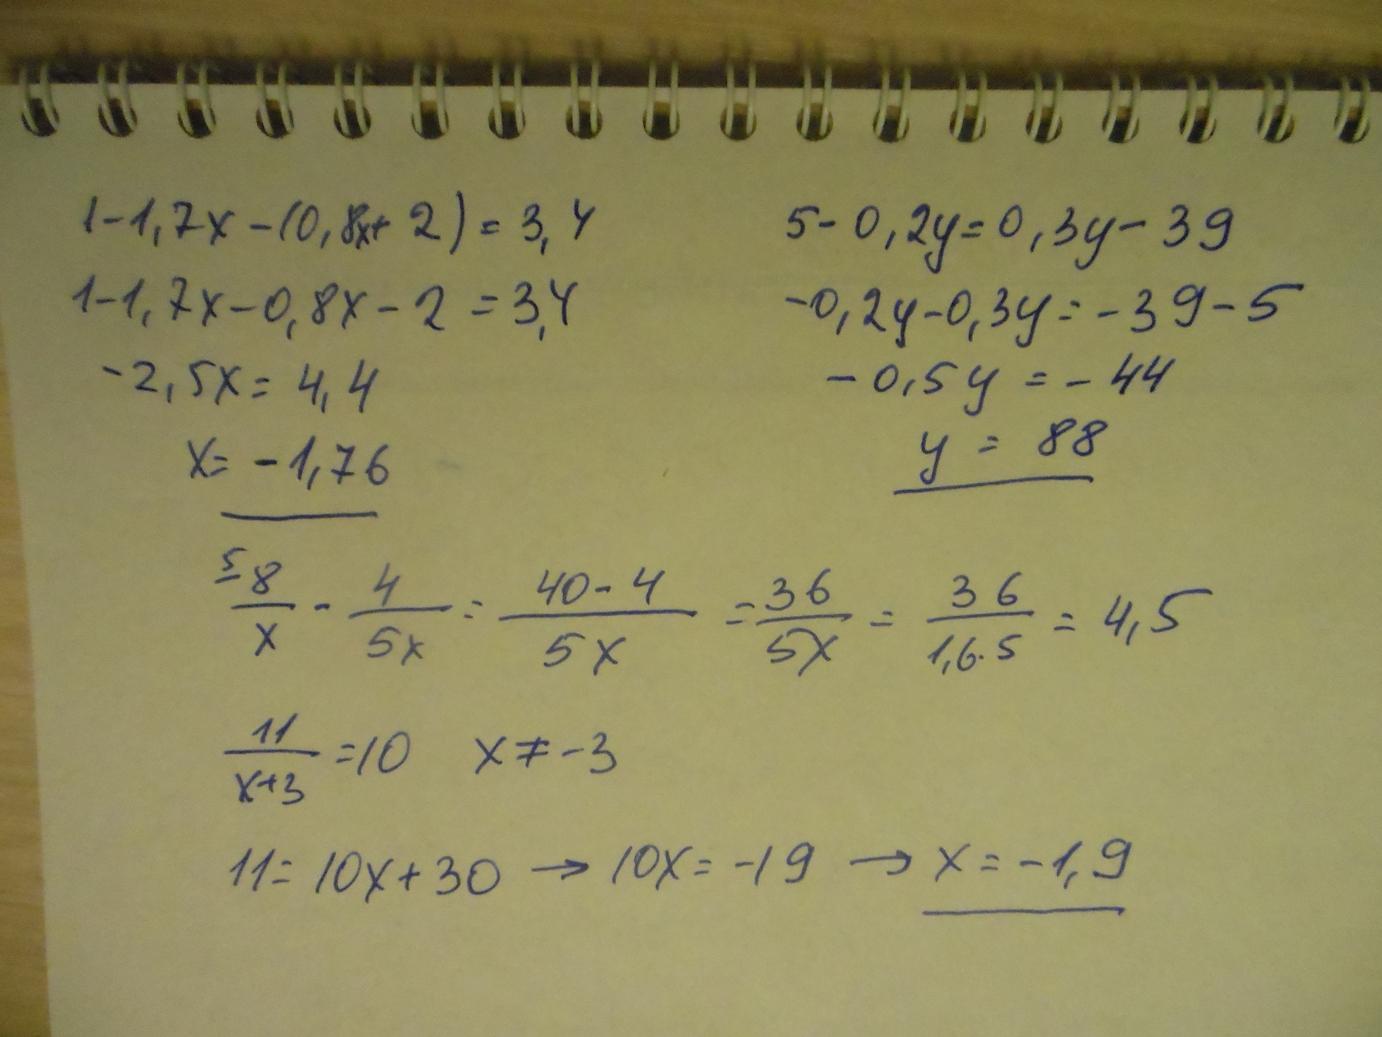 1-1,7x-(0,8x+2)=3,4
1-1,7x-0,8x-2=3,4
-2,5x=4,4
x=-1,76
5-0,2y=0,3y-39
-0,2y-0,3y=-39-5
-0,5y=-44
y=88
5 8/x - 4/5x = 40-4/5x = 36/5x = 36/1,6·5 = 4,5
11/x+3 =10 x≠-3
11=10x+30 → 10x=-19 → x=-1,9